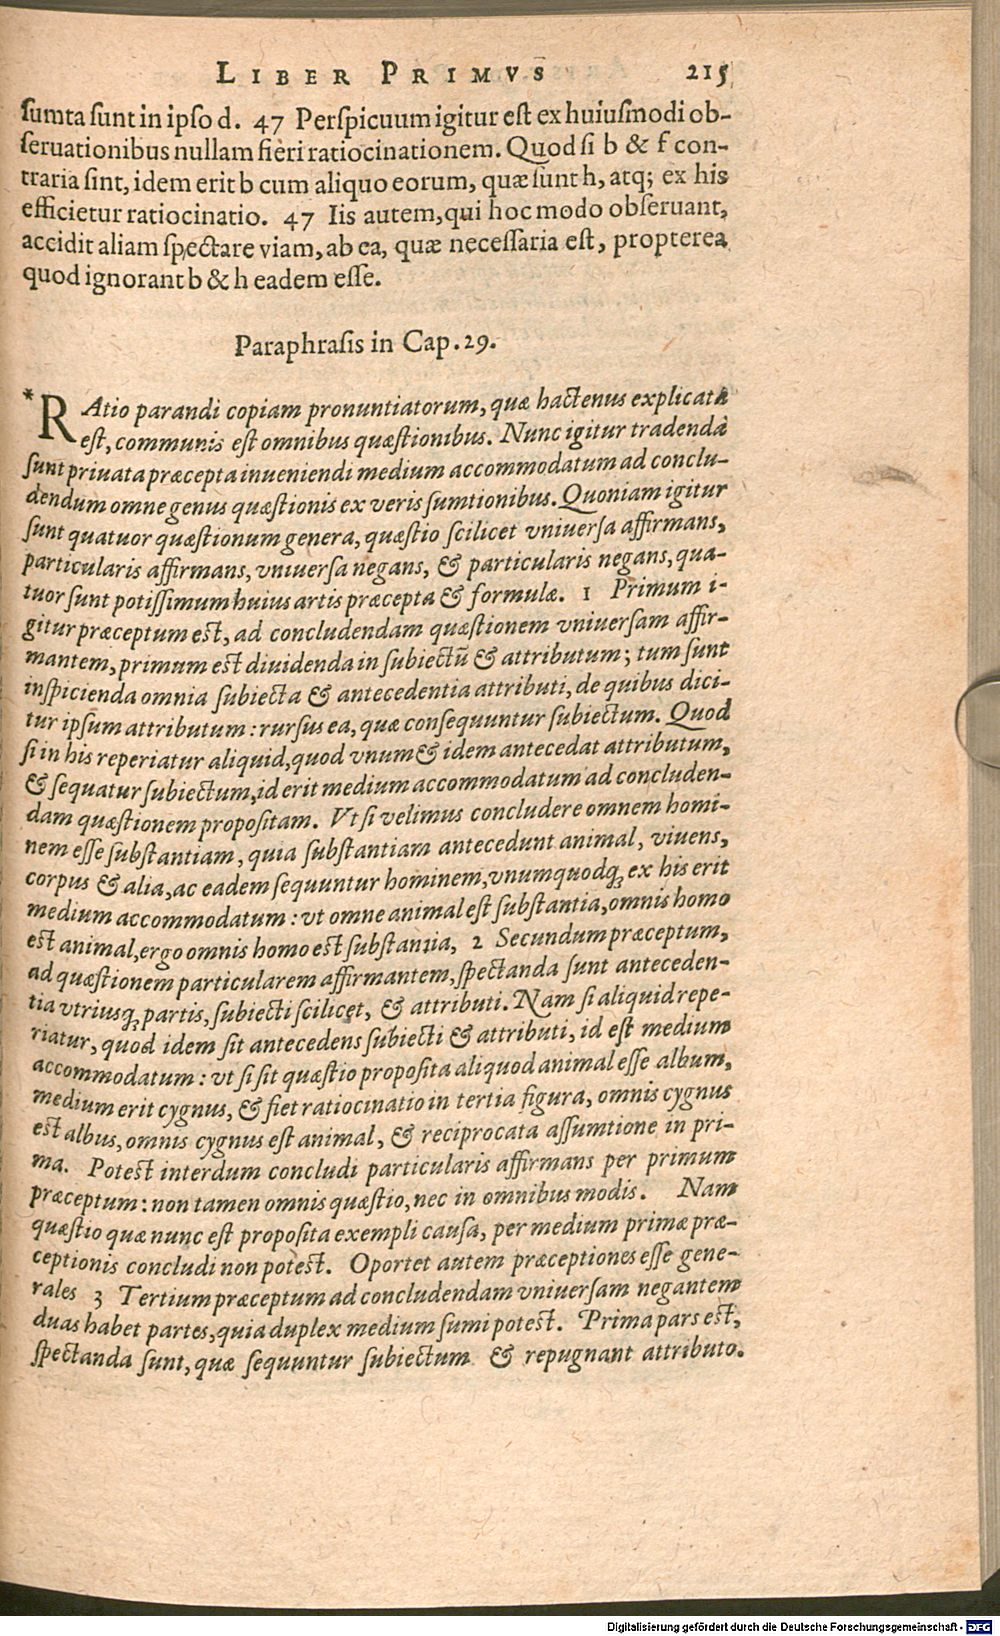 LIBER PRIMVS 215
ſumta ſunt in ipſo d. 47 Perſpicuum igitur eſt ex huiuſmodi ob-
ſeruationibus nullam fieri ratiocinationem. Quod ſi b & f con-
traria ſint, idem erit b cum aliquo eorum, quæ ſunt h, atq; ex his
efficietur ratiocinatio. 47 Iis autem, qui hoc modo obſeruant,
accidit aliam ſpectare viam, ab ea, quæ neceſſaria eſt, propterea
quod ignorant b & h eadem eſſe.
Paraphraſis in Cap. 29.
*RAtio parandi copiam pronuntiatorum, quæ hactenus explicata
eſt, communis eſt omnibus quæſtionibus. Nunc igitur tradenda
ſunt priuata præcepta inueniendi medium accommodatum ad conclu-
dendum omne genus quæſtionis ex veris ſumtionibus. Quoniam igitur
ſunt quatuor quæſtionum genera, quæſtio ſcilicet vniuerſa affirmans,
particularis affirmans, vniuerſa negans, & particularis negans, qua-
tuor ſunt potiſſimum huius artis præcepta & formulæ. 1 Primum i-
gitur præceptum eſt, ad concludendam quæſtionem vniuerſam affir-
mantem, primum eſt diuidenda in ſubiectū & attributum; tum ſunt
inſpicienda omnia ſubiecta & antecedentia attributi, de quibus dici-
tur ipſum attributum: rurſus ea, quæ conſequuntur ſubiectum. Quod
ſi in his reperiatur aliquid, quod vnum & idem antecedat attributum,
& ſequatur ſubiectum, id erit medium accommodatum ad concluden-
dam quæſtionem propoſitam. Vt ſi velimus concludere omnem homi-
nem eſſe ſubſtantiam, quia ſubſtantiam antecedunt animal, viuens,
corpus & alia, ac eadem ſequuntur hominem, vnumquodq; ex his erit
medium accommodatum: vt omne animal eſt ſubſtantia, omnis homo
eſt animal, ergo omnis homo eſt ſubſtantia, 2 Secundum præceptum,
ad quæſtionem particularem affirmantem, ſpectanda ſunt anteceden-
tia vtriusq; partis, ſubiecti ſcilicet, & attributi. Nam ſi aliquid repe-
riatur, quod idem ſit antecedens ſubiecti & attributi, id eſt medium
accommodatum: vt ſi ſit quæſtio propoſita aliquod animal eſſe album,
medium erit cygnus, & fiet ratiocinatio in tertia figura, omnis cygnus
eſt albus, omnis cygnus eſt animal, & reciprocata aſſumtione in pri-
ma. Poteſt interdum concludi particularis affirmans per primum
præceptum: non tamen omnis quæſtio, nec in omnibus modis. Nam
quæſtio quæ nunc eſt propoſita exempli cauſa, per medium primæ præ-
ceptionis concludi non poteſt. Oportet autem præceptiones eſſe gene-
rales 3 Tertium præceptum ad concludendam vniuerſam negantem
duas habet partes, quia duplex medium ſumi poteſt. Prima pars eſt,
ſpectanda ſunt, quæ ſequuntur ſubiectum & repugnant attributo.
Digitalisierung gefördert durch die Deutsche Forschungsgemeinschaft - DFG